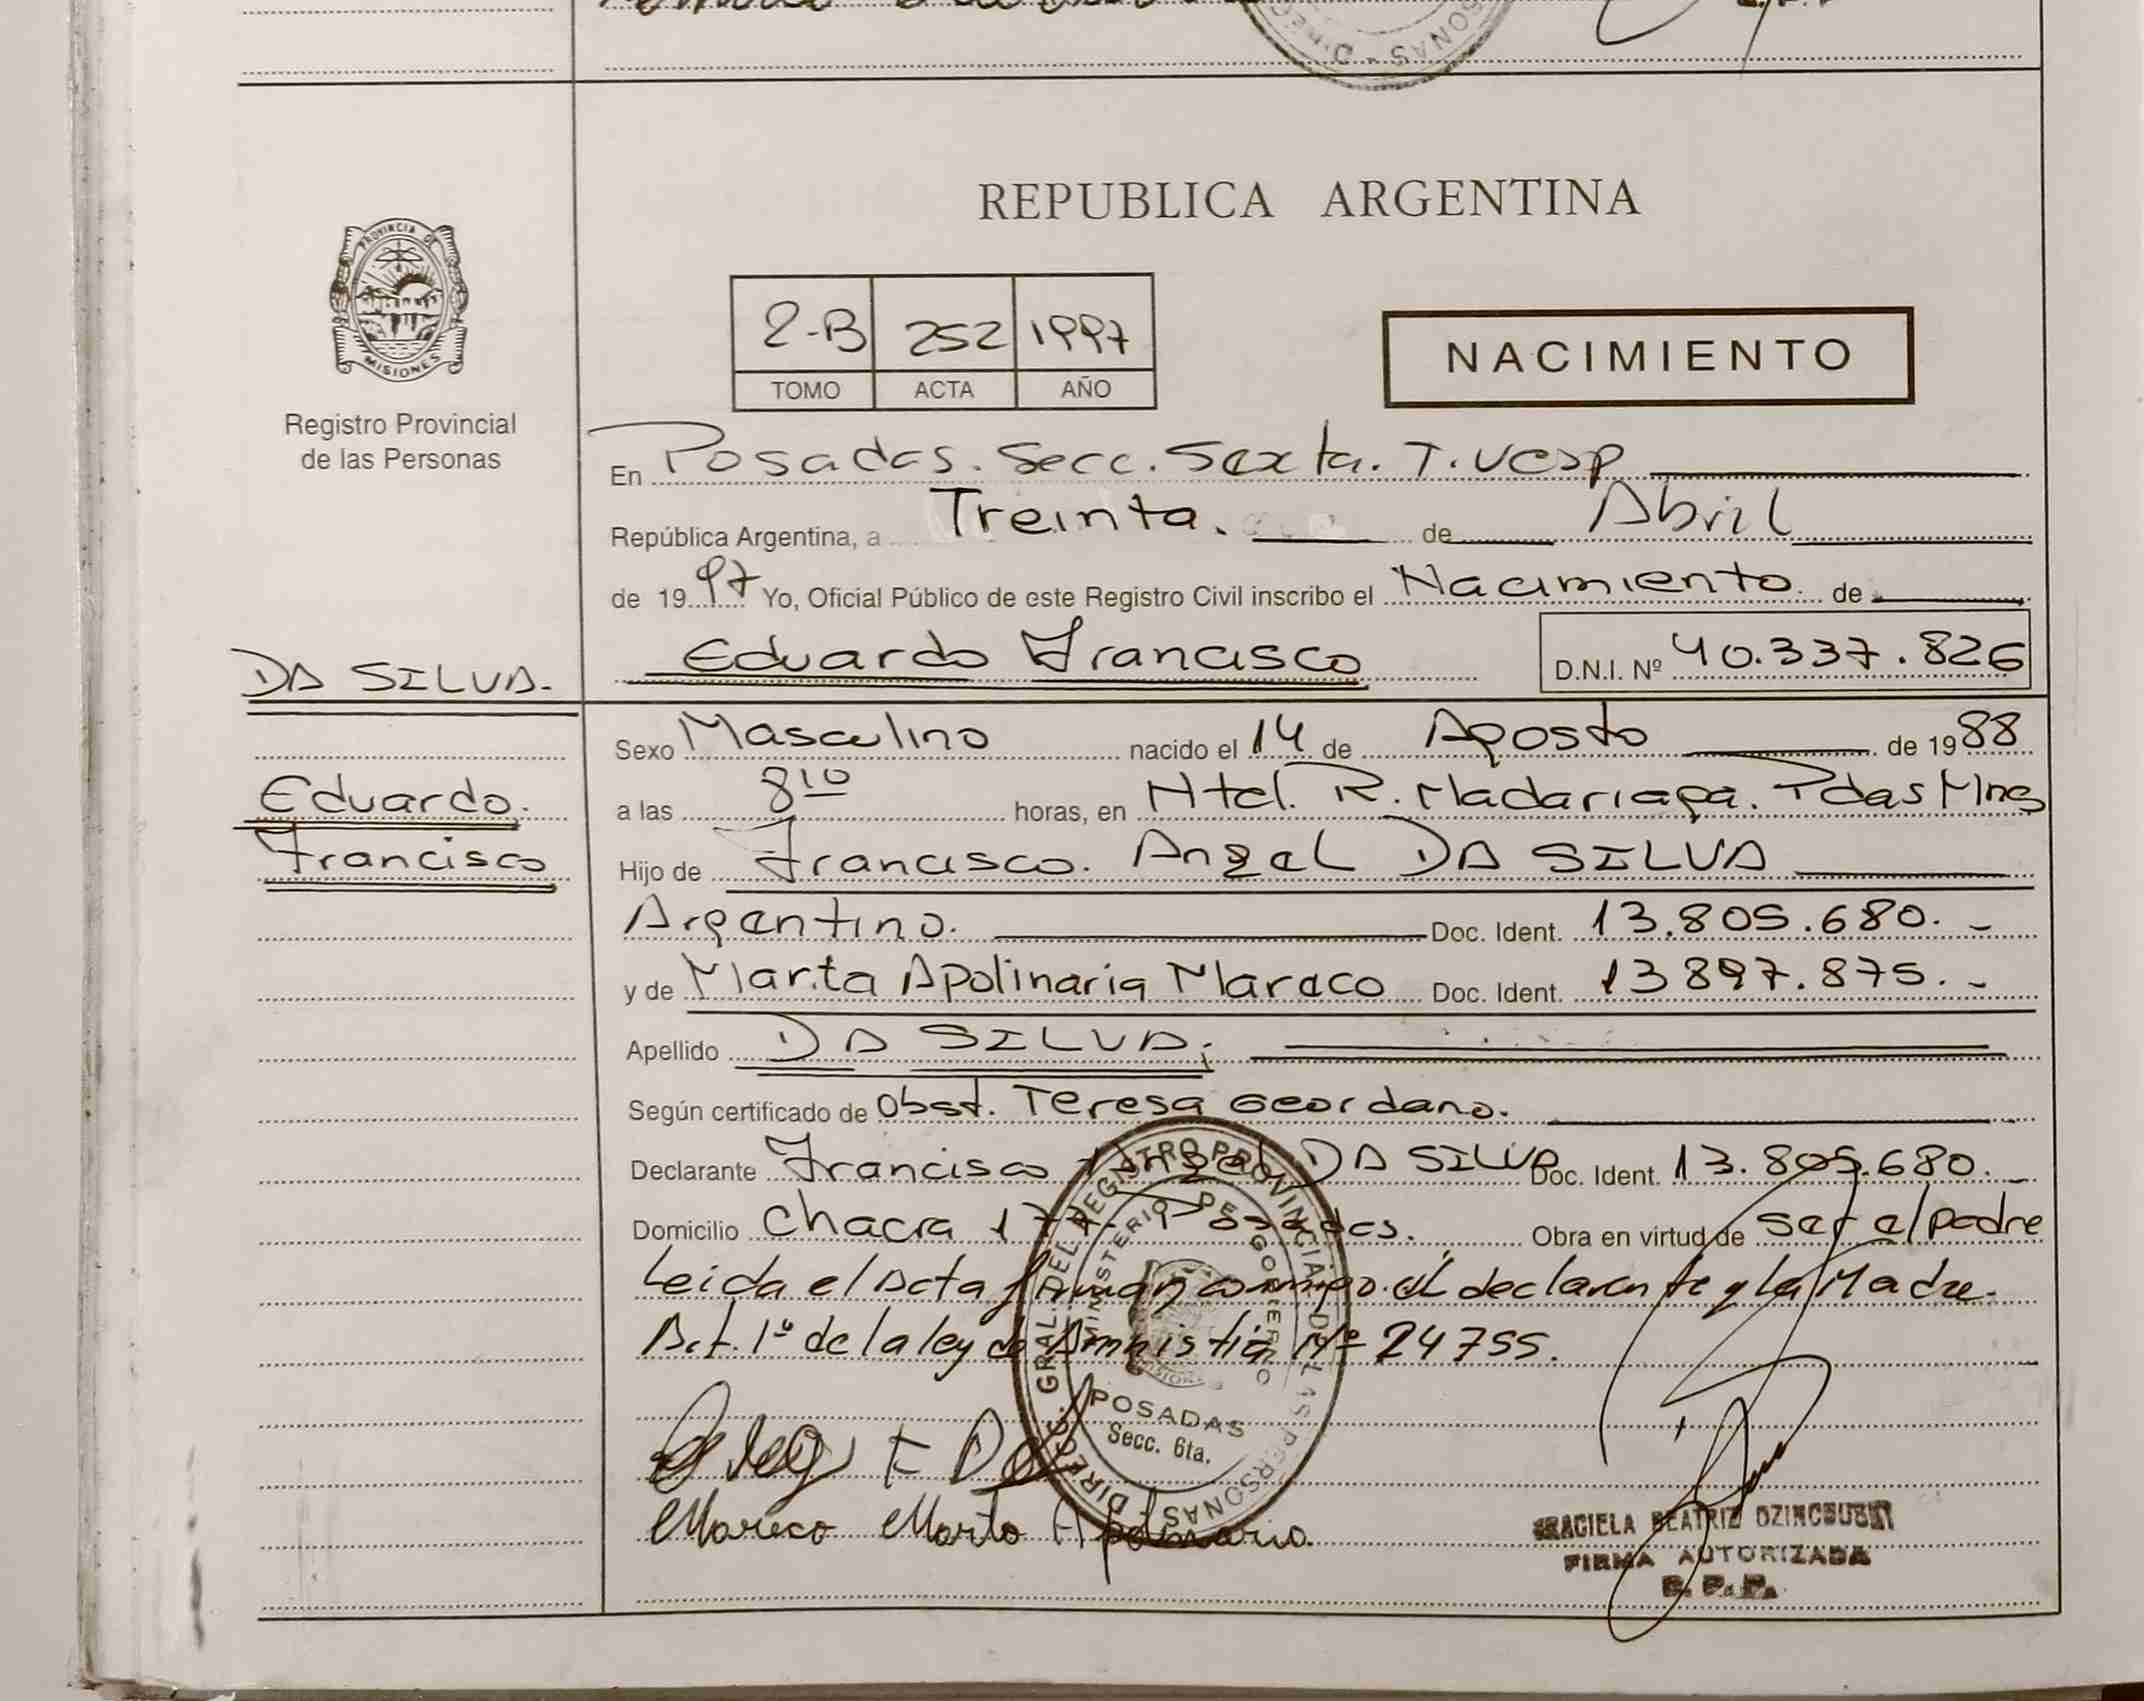 REPUBLICA ARGENTINA
PROVINCIA DE
MISIONES
Registro Provincial
de las Personas
2-B 252 1997
TOMO ACTA AÑO
NACIMIENTO
En Posadas. Secc. Sexta. T. Vesp
República Argentina, a Treinta. de Abril
de 1997 Yo, Oficial Público de este Registro Civil inscribo el Nacimiento. de
Eduardo Francisco D.N.I. Nº 40.337.826
DA SILVA.
Eduardo.
Francisco
Sexo Masculino nacido el 14 de Agosto de 1988
a las 8 10 horas, en Htal. R. Madariaga. Pdas Mnes
Hijo de Francisco. Angel DA SILVA
Argentino. Doc. Ident. 13.805.680.-
y de Marta Apolinaria Mareco Doc. Ident. 13 897.875.-
Apellido DA SILVA.
Según certificado de Obst. Teresa Geordano.
Declarante Francisco Angel DA SILVA Doc. Ident. 13.805.680.-
Domicilio Chacra Posadas. Obra en virtud de ser el padre
Leida el Acta firman conmigo el declarante y la Madre.
Art. 1º de la ley de Amnistia Nº 24755.
DIREC. GRAL. DEL REGISTRO PROVINCIAL DE LAS PERSONAS
MINISTERIO DE GOBIERNO
MISIONES
POSADAS
Secc. 6ta.
Mareco Marta Apolinaria.
GRACIELA BEATRIZ
FIRMA AUTORIZADA
R. P. P.